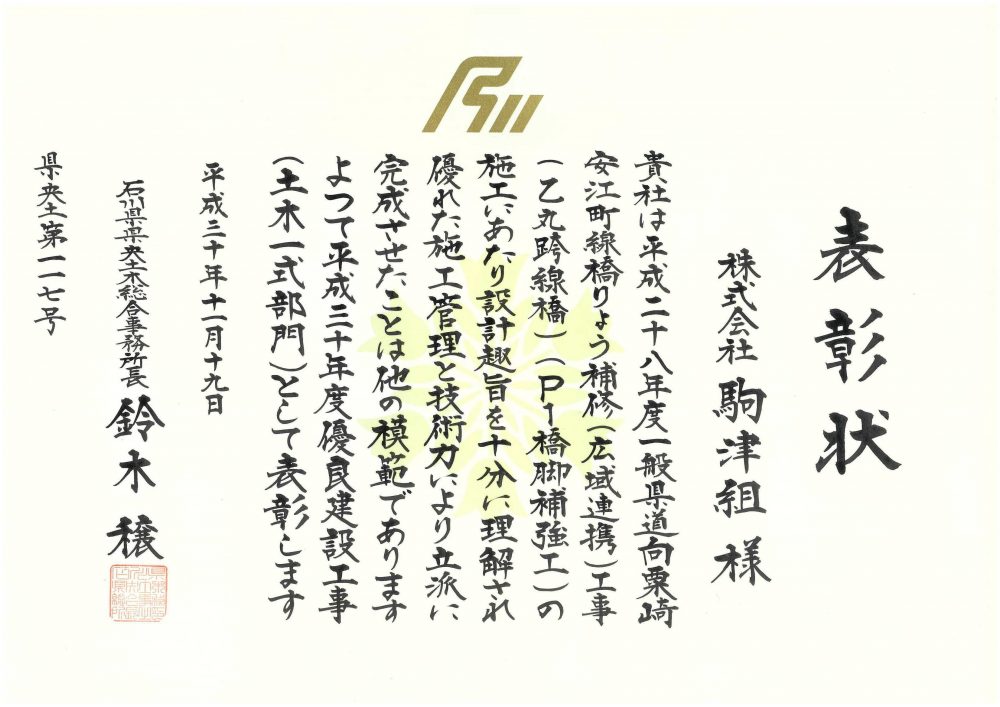 表彰状
株式会社 駒津組 様
貴社は平成二十八年度一般県道向粟崎
安江町線橋りょう補修(広域連携)工事
(乙丸跨線橋)(P1橋脚補強工)の
施工にあたり設計趣旨を十分に理解され
優れた施工管理と技術力により立派に
完成させたことは他の模範であります
よつて平成三十年度優良建設工事
(土木一式部門)として表彰します
平成三十年十一月十九日
石川県県央土木総合事務所長 鈴木 穣
県央土第一一七号